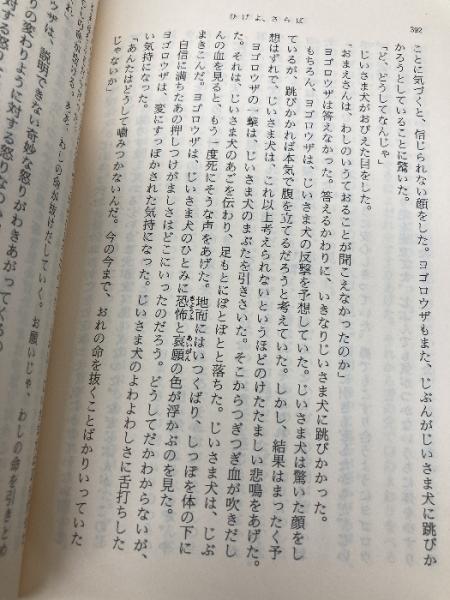 ひげよ、さらば
392
ことに気づくと、信じられない顔をした。ヨゴロウザもまた、じぶんがじいさま犬に跳びか
かろうとしていることに驚いた。
「ど、どうしてなんじゃ」
じいさま犬がおびえた目をした。
「おまえさんは、わしのいうておることが聞こえなかったのか」
ヨゴロウザは答えなかった。答えるかわりに、いきなりじいさま犬に跳びかかった。
もちろん、ヨゴロウザは、じいさま犬の反撃を予想していた。じいさま犬は驚いた顔をし
ているが、跳びかかれば本気で腹を立てるだろうと考えていた。しかし、結果はまったく予
想はずれで、じいさま犬は、これ以上考えられないというほどのけたたましい悲鳴をあげた。
ヨゴロウザの一撃は、じいさま犬のまぶたを引きさいた。そこからつぎつぎ血が吹きだし
た。それは、じいさま犬のあごを伝わり、足もとにぽとぽとと落ちた。じいさま犬は、じぶ
んの血を見ると、もう一度死にそうな声をあげた。地面にはいつくばり、しっぽを体の下に
まきこんだ。ヨゴロウザは、じいさま犬のひとみに恐怖と哀願の色が浮かぶのを見た。
自信に満ちたあの押しつけがましさはどこにいったのだろう。どうしてだかわからないが、
ヨゴロウザは、変にすっぽかされた気持になった。じいさま犬のよわよわしさに舌打ちした
い気持になった。
「あんたはどうして嚙みつかないんだ。今の今まで、おれの命を抜くことばかりいっていた
じゃないか」
わしの命が抜けだしていく。お願いじゃ、わしの命を引きとめ
ヨゴロウザは、説明できない奇妙な怒りがわきあがってくるの
りの変わりように対する怒りなのか